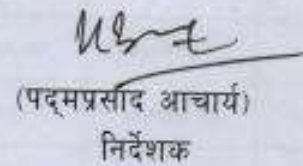 (पद्मप्रसाद आचार्य)
निर्देशक